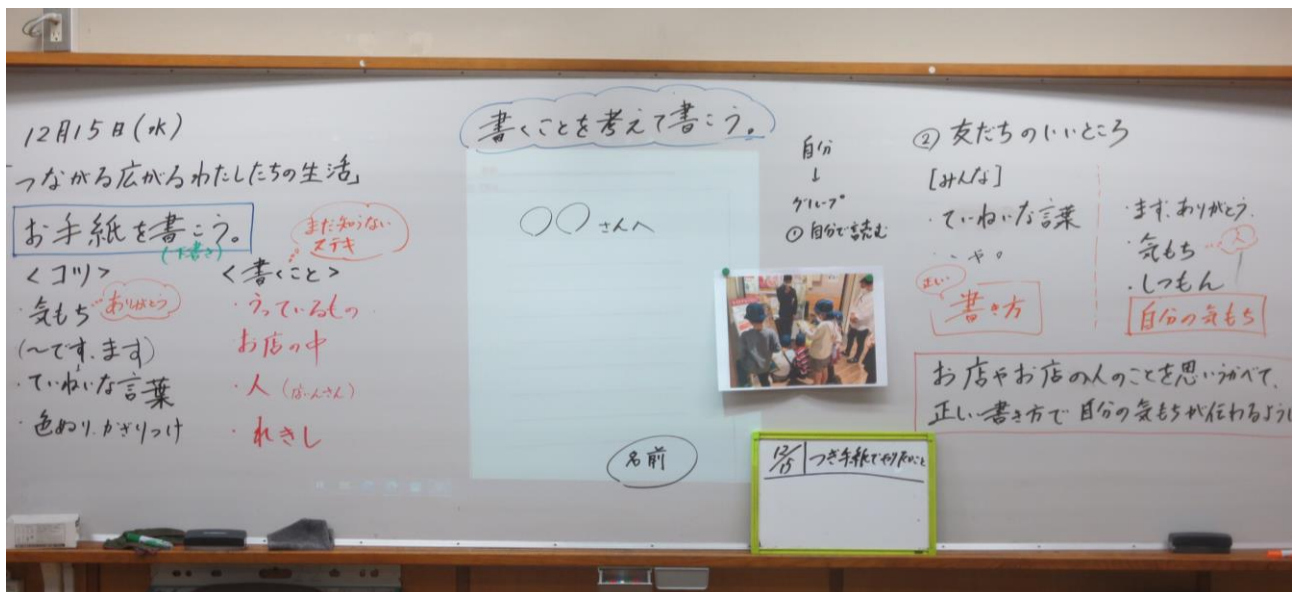 12月15日(水)
「つながる広がるわたしたちの生活」
お手紙を書こう。
(下書き)
<コツ>
・気もち
ありがとう
(~です、ます)
・ていねいな言葉
・色ぬり、かざりつけ
まだ知らない
ステキ
<書くこと>
・うっているもの
お店の中
・人
・れきし
書くことを考えて書こう。
〇〇さんへ
名前
自分
↓
グループ
① 自分で読む
② 友だちのいいところ
[みんな]
・ていねいな言葉
・、や。
正しい
書き方
・まず、ありがとう。
・気もち
人
・しつもん
自分の気もち
お店やお店の人のことを思いうかべて、
正しい書き方で自分の気もちが伝わるように
12/15 つぎ手紙でやりたいこと